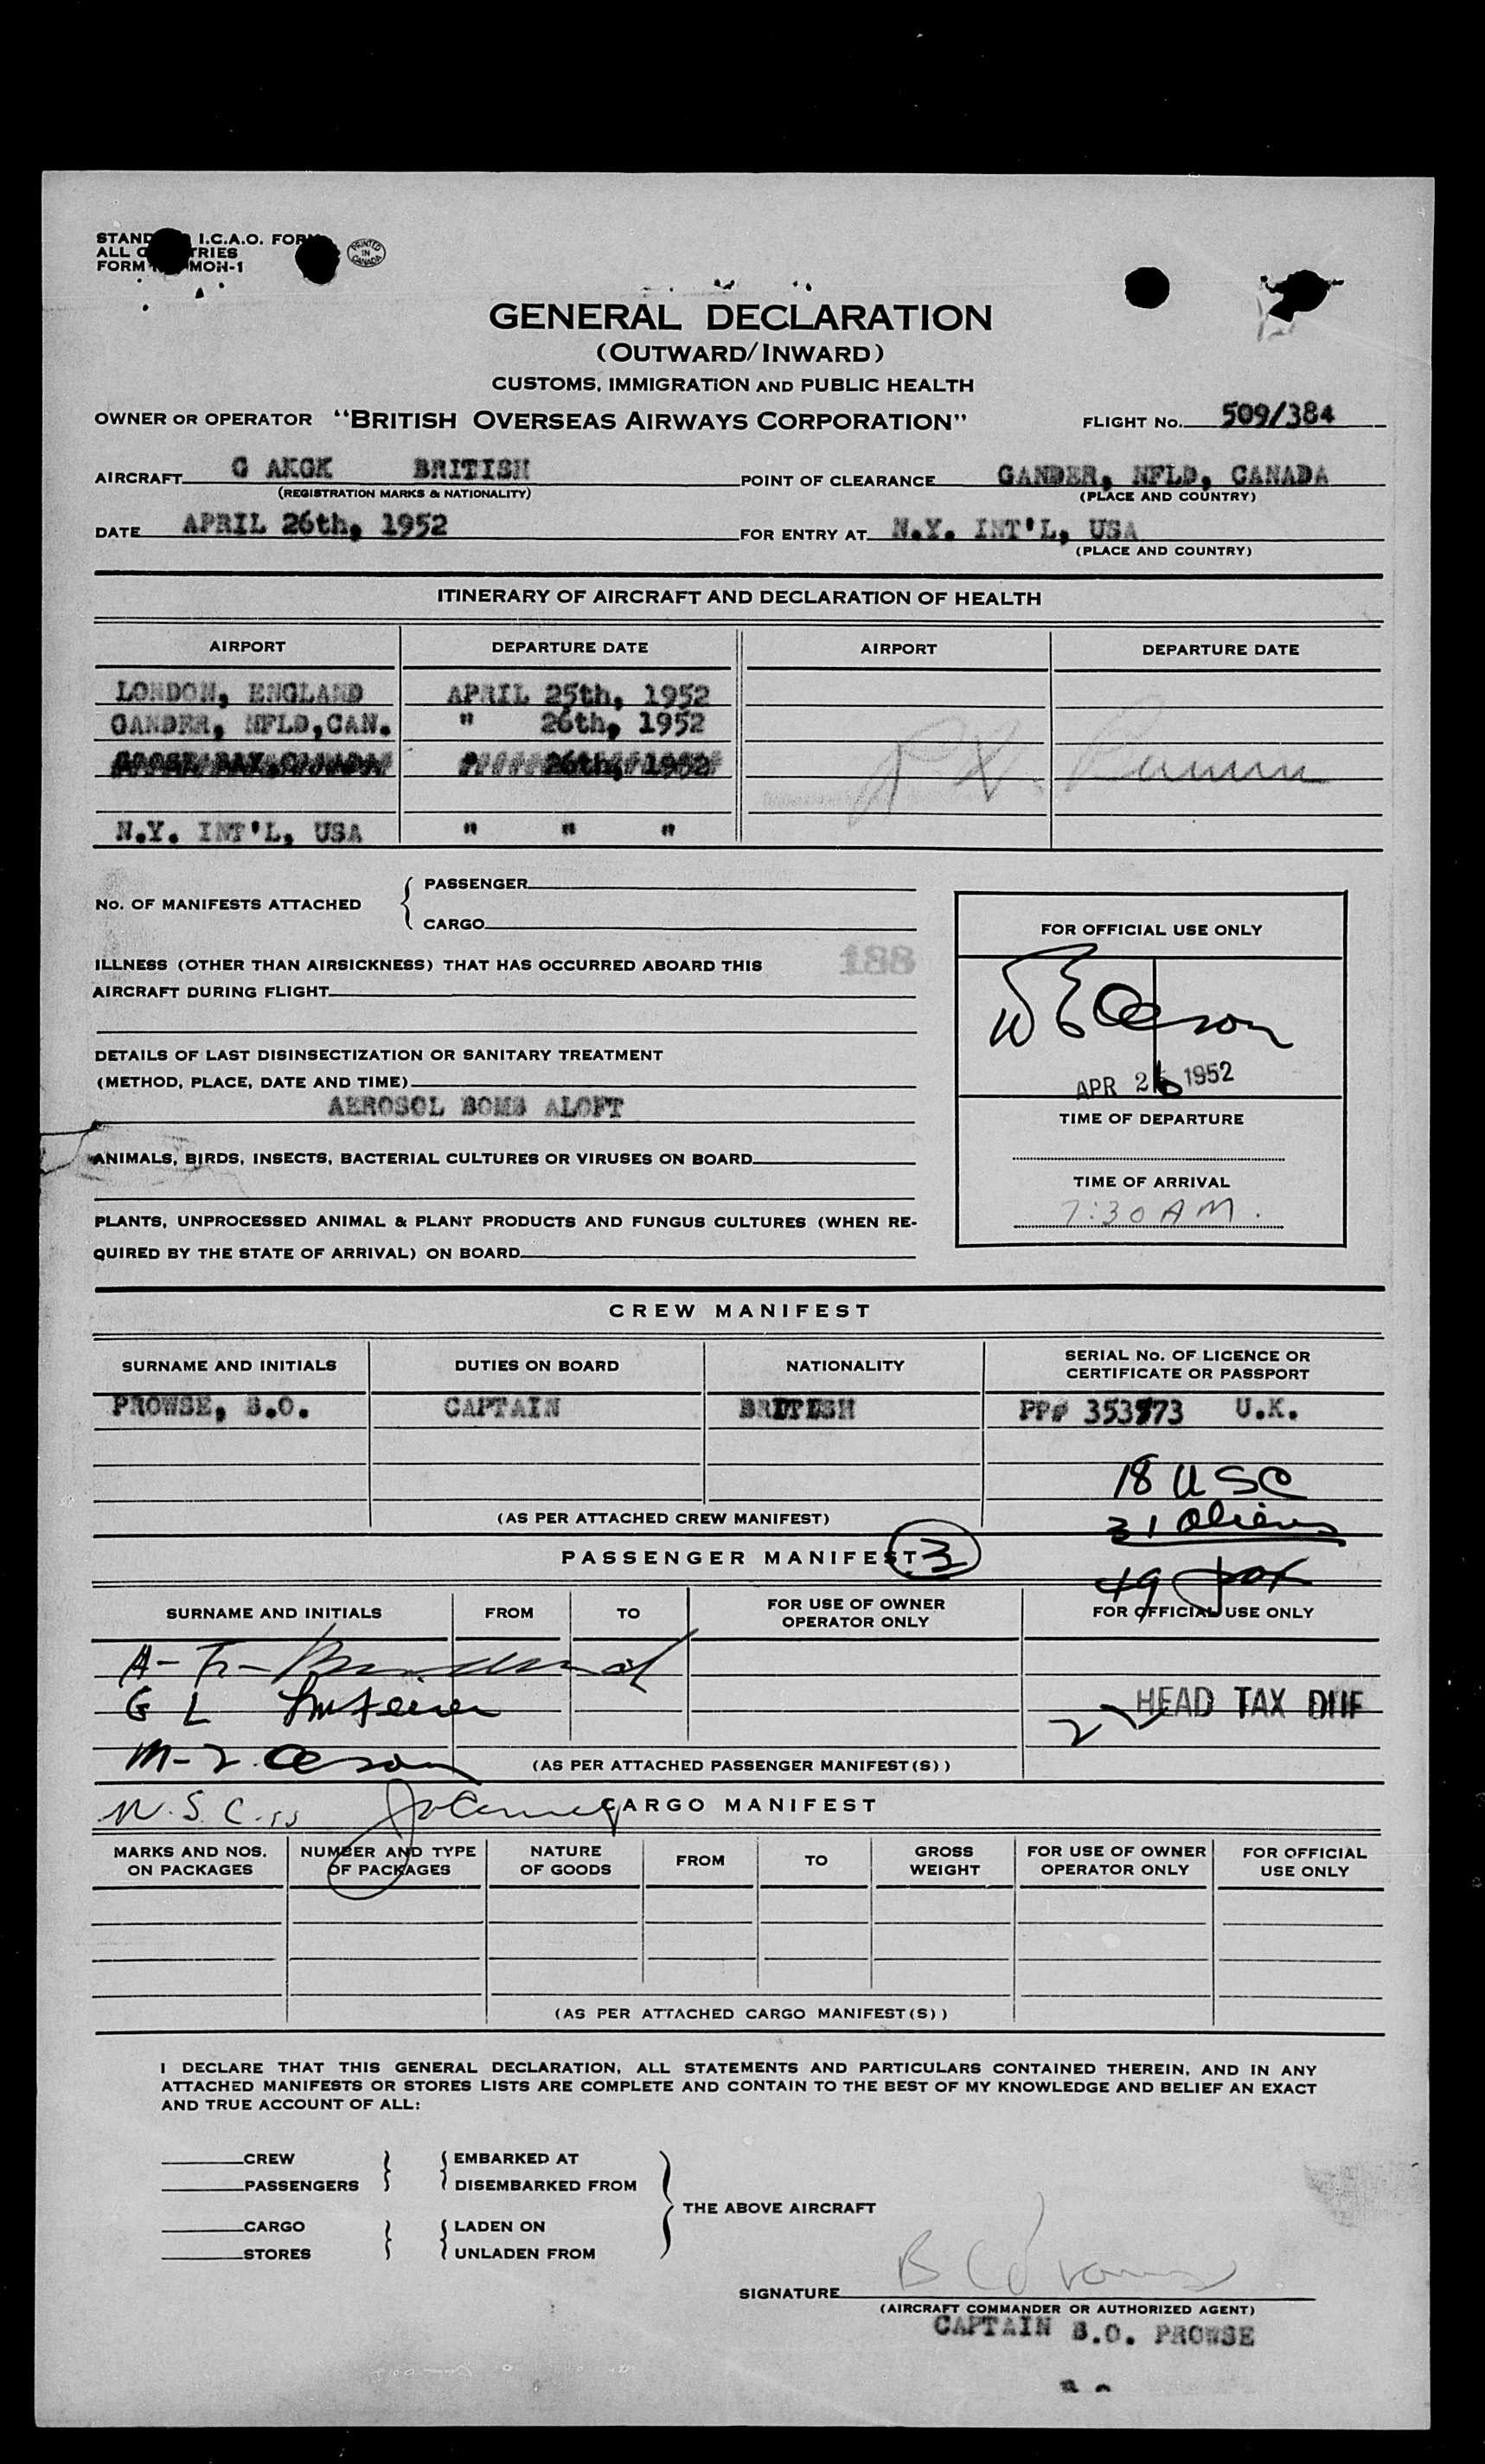 I.C.A.O.
ALL
FORM MOH-1
PRINTED IN CANADA
GENERAL DECLARATION
(OUTWARD/INWARD)
CUSTOMS, IMMIGRATION AND PUBLIC HEALTH
OWNER OR OPERATOR "BRITISH OVERSEAS AIRWAYS CORPORATION" FLIGHT No. 509/384
AIRCRAFT G AKGK BRITISH POINT OF CLEARANCE GANDER, NFLD, CANADA
(REGISTRATION MARKS & NATIONALITY) (PLACE AND COUNTRY)
DATE APRIL 26th, 1952 FOR ENTRY AT N.Y. INT'L, USA
(PLACE AND COUNTRY)
ITINERARY OF AIRCRAFT AND DECLARATION OF HEALTH
AIRPORT DEPARTURE DATE AIRPORT DEPARTURE DATE
LONDON, ENGLAND APRIL 25th, 1952
GANDER, NFLD,CAN. " 26th, 1952
GOOSE BAY, CANADA " 26th, 1952
N.Y. INT'L, USA " " "
No. OF MANIFESTS ATTACHED { PASSENGER
CARGO
FOR OFFICIAL USE ONLY
ILLNESS (OTHER THAN AIRSICKNESS) THAT HAS OCCURRED ABOARD THIS 188
AIRCRAFT DURING FLIGHT
DETAILS OF LAST DISINSECTIZATION OR SANITARY TREATMENT
(METHOD, PLACE, DATE AND TIME)
APR 26 1952
AEROSOL BOMB ALOFT
TIME OF DEPARTURE
ANIMALS, BIRDS, INSECTS, BACTERIAL CULTURES OR VIRUSES ON BOARD
TIME OF ARRIVAL
7:30 AM.
PLANTS, UNPROCESSED ANIMAL & PLANT PRODUCTS AND FUNGUS CULTURES (WHEN RE-
QUIRED BY THE STATE OF ARRIVAL) ON BOARD
CREW MANIFEST
SURNAME AND INITIALS DUTIES ON BOARD NATIONALITY SERIAL No. OF LICENCE OR
CERTIFICATE OR PASSPORT
PROWSE, B.O. CAPTAIN BRITISH PP# 353973 U.K.
18 USC
31 Aliens
(AS PER ATTACHED CREW MANIFEST)
PASSENGER MANIFEST 3
49 pax
SURNAME AND INITIALS FROM TO FOR USE OF OWNER
OPERATOR ONLY
FOR OFFICIAL USE ONLY
G L
2 HEAD TAX DUE
(AS PER ATTACHED PASSENGER MANIFEST(S))
CARGO MANIFEST
MARKS AND NOS.
ON PACKAGES
NUMBER AND TYPE
OF PACKAGES
NATURE
OF GOODS
FROM
TO
GROSS
WEIGHT
FOR USE OF OWNER
OPERATOR ONLY
FOR OFFICIAL
USE ONLY
(AS PER ATTACHED CARGO MANIFEST(S))
I DECLARE THAT THIS GENERAL DECLARATION, ALL STATEMENTS AND PARTICULARS CONTAINED THEREIN, AND IN ANY
ATTACHED MANIFESTS OR STORES LISTS ARE COMPLETE AND CONTAIN TO THE BEST OF MY KNOWLEDGE AND BELIEF AN EXACT
AND TRUE ACCOUNT OF ALL:
CREW EMBARKED AT
PASSENGERS DISEMBARKED FROM
THE ABOVE AIRCRAFT
CARGO LADEN ON
STORES UNLADEN FROM
SIGNATURE
(AIRCRAFT COMMANDER OR AUTHORIZED AGENT)
CAPTAIN B.O. PROWSE